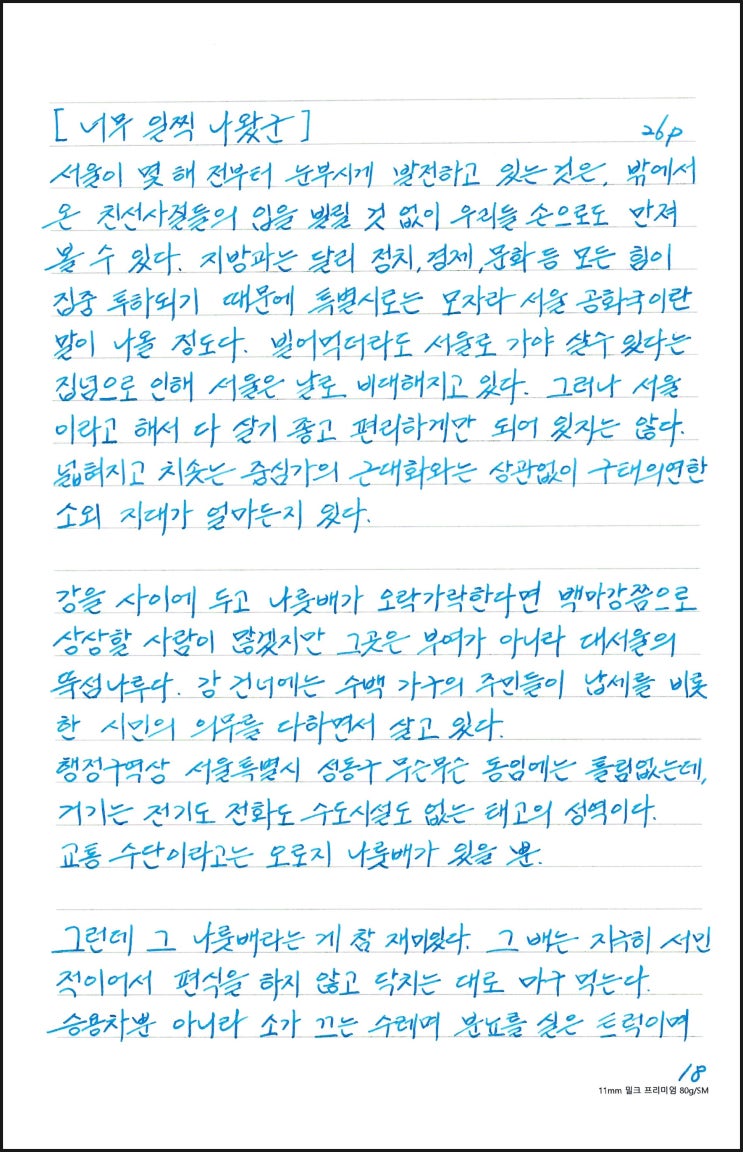 [ 너무 일찍 나왔군 ] 26p
서울이 몇 해 전부터 눈부시게 발전하고 있는 것은, 밖에서
온 친선사절들의 입을 빌릴 것 없이 우리들 손으로도 만져
볼 수 있다. 지방과는 달리 정치, 경제, 문화 등 모든 힘이
집중 투하되기 때문에 특별시로는 모자라 서울 공화국이란
말이 나올 정도다. 빌어먹더라도 서울로 가야 살수 있다는
집념으로 인해 서울은 날로 비대해지고 있다. 그러나 서울
이라고 해서 다 살기 좋고 편리하게만 되어 있지는 않다.
넓혀지고 치솟는 중심가의 근대화와는 상관없이 구태의연한
소외 지대가 얼마든지 있다.
강을 사이에 두고 나룻배가 오락가락한다면 백마강쯤으로
상상할 사람이 많겠지만 그곳은 부여가 아니라 대서울의
뚝섬나루다. 강 건너에는 수백 가구의 주민들이 납세를 비롯
한 시민의 의무를 다하면서 살고 있다.
행정구역상 서울특별시 성동구 무슨무슨 동임에는 틀림없는데,
거기는 전기도 전화도 수도시설도 없는 태고의 성역이다.
교통 수단이라고는 오로지 나룻배가 있을 뿐.
그런데 그 나룻배라는 게 참 재미있다. 그 배는 지극히 서민
적이어서 편식을 하지 않고 닥치는 대로 마구 먹는다.
승용차뿐 아니라 소가 끄는 수레며 분뇨를 실은 트럭이며
18
11mm 밀크 프리미엄 80g/SM